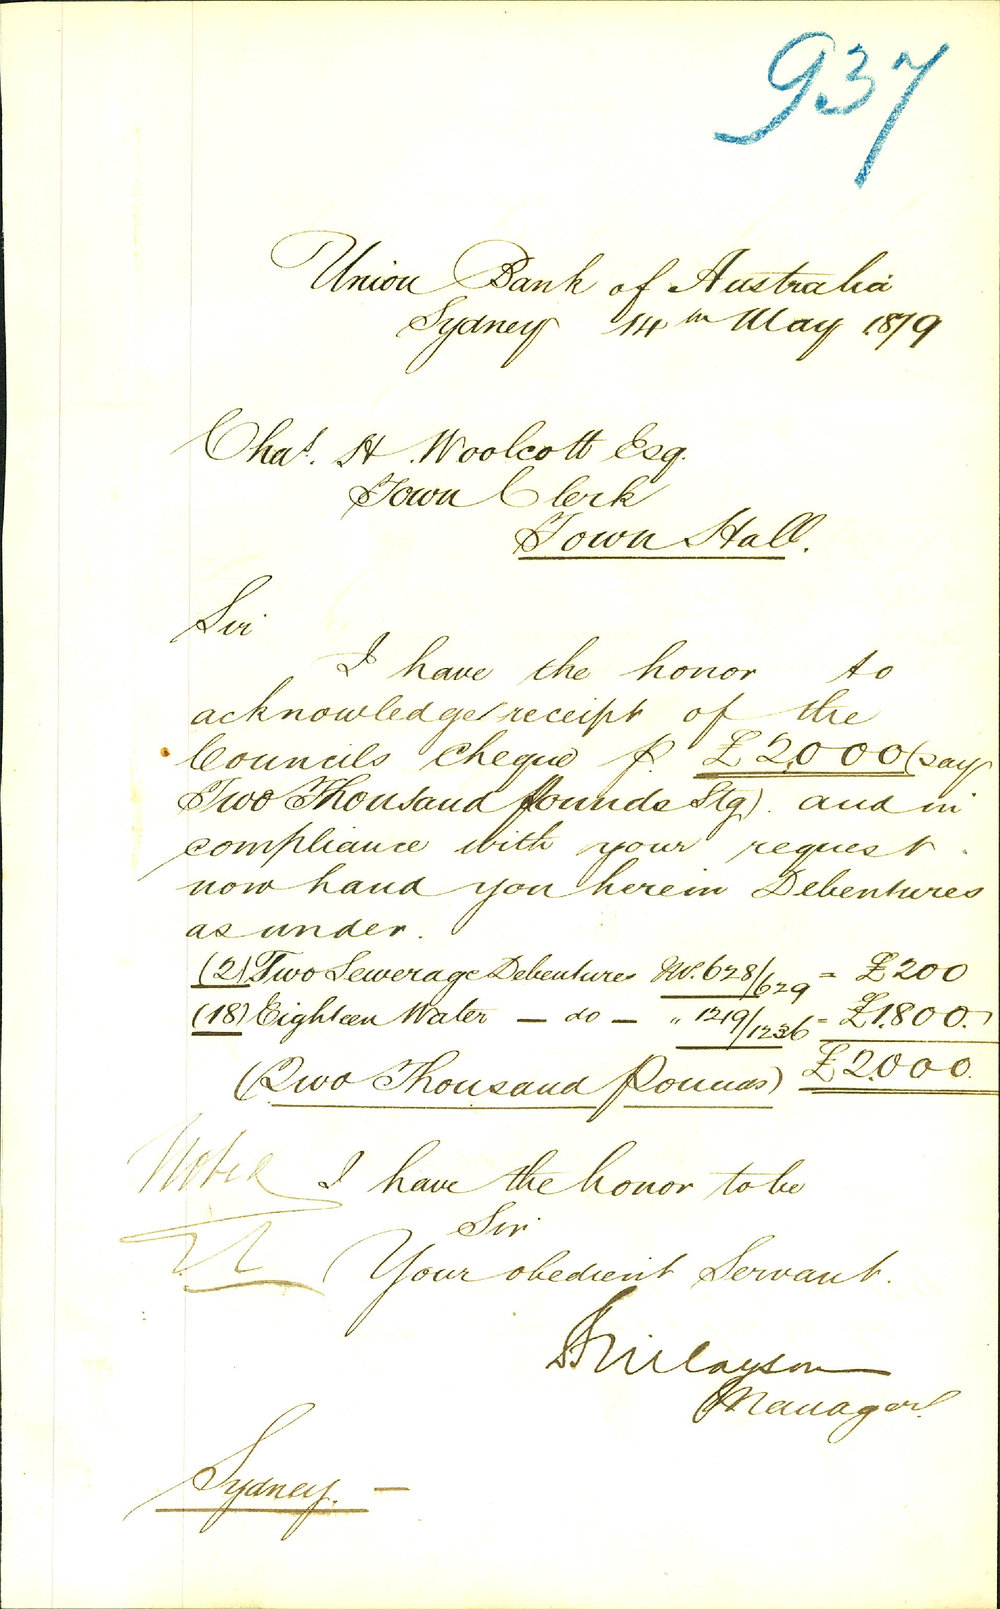 937
Union Bank of Australia
Sydney 14th May 1879
Chas. H. Woolcott Esq.
Town Clerk
Town Hall.
Sir
I have the honor to
acknowledge receipt of the
Councils Cheque p. £2000 (say
Two Thousand Pounds Stg). and in
compliance with your request
now hand you herein Debentures
as under.
(2) Two Sewerage Debentures No. 628/629 = £200
(18) Eighteen Water – do – " 1219/1236 = £1800.
(Two Thousand Pounds) £2000.
Noted I have the honor to be
Sir
Your obedient Servant.
Finlayson
Manager
Sydney. –